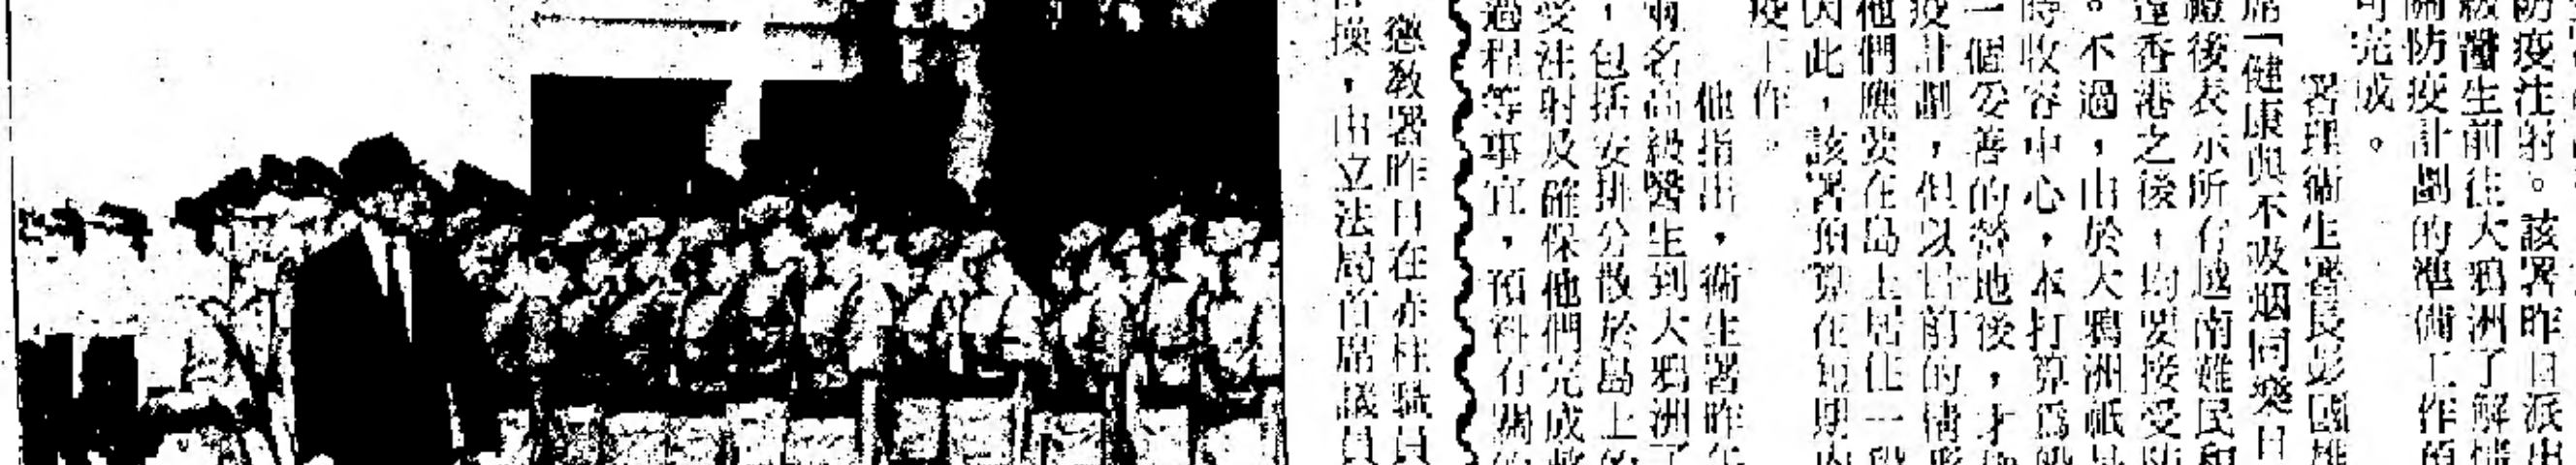 防疫注射。該署昨日派出
級醫生前往大鴉洲了解情
關防疫計劃的準備工作預
可完成。
署理衞生署長彭國雄
席「健康與不吸烟同樂日
後表示所有越南難民和
達香港之後，均要接受防
。不過，由於大鴉洲祇是
時收容中心，本打算爲船
一個妥善的營地後，才
疫計劃，但以目前的情形
他們應要在島上居住一段
因此，該署預算在短期內
疫工作。
他指出，衞生署昨午
兩名高級醫生到大鴉洲了
，包括安排分散於島上的
受注射及確保他們完成
過程等事宜，預料有關的
懲教署昨日在赤柱職員
操，由立法局首席議員